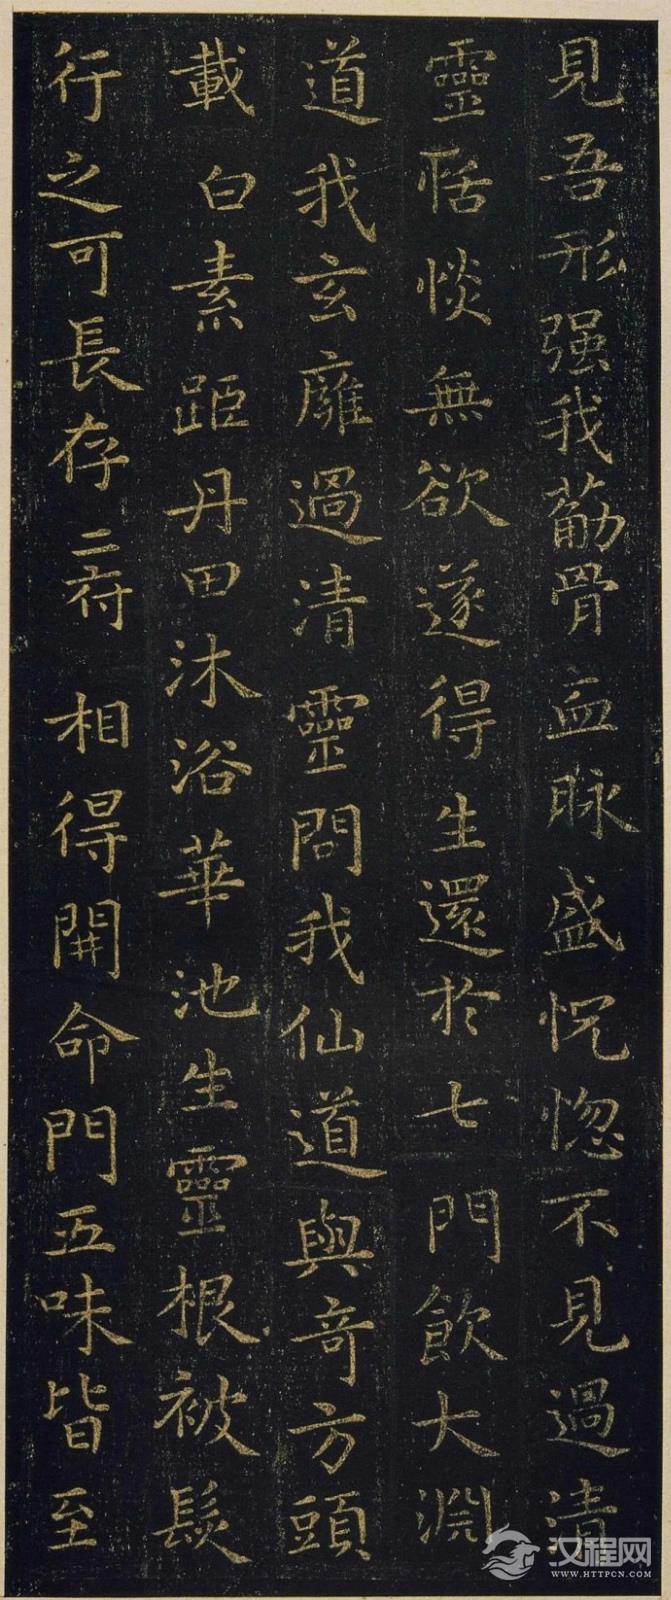 見吾形强我葋骨血脉盛怳惚不見過清
靈恬惔無欲遂得生還於七門飲大淵
道我玄廱過清靈問我仙道與奇方頭
載白素距丹田沐浴華池生靈根被髮
行之可長存二府相得開命門五味皆至
汉程网
WWW.HTTPCN.COM